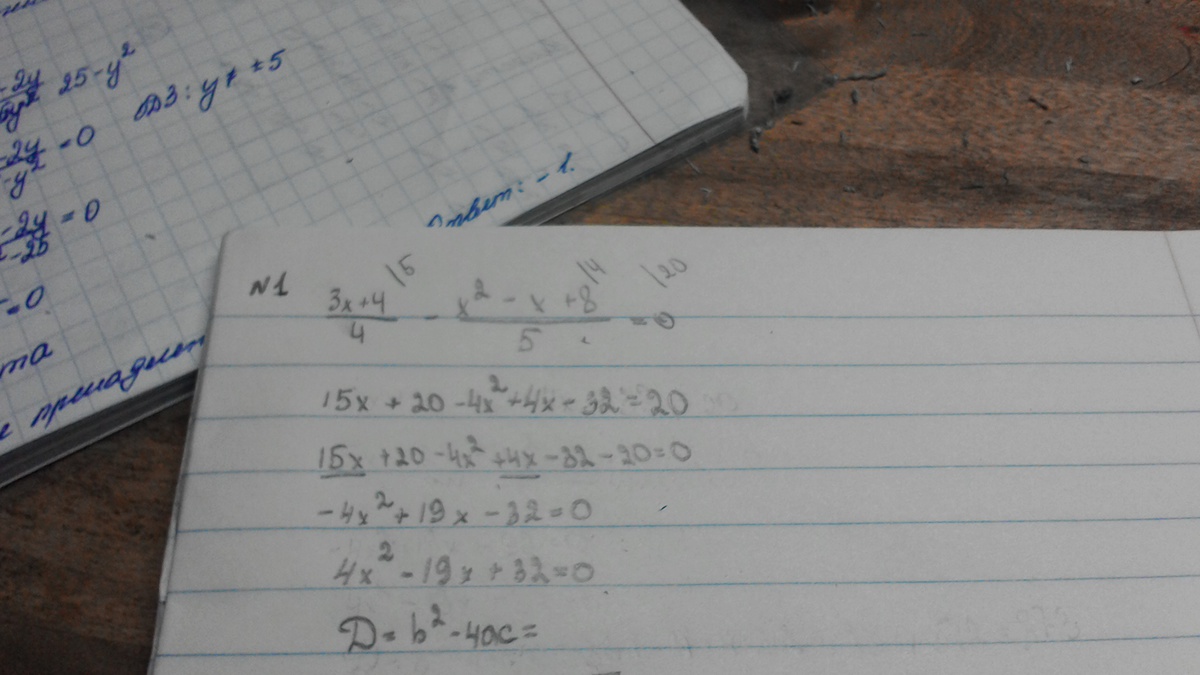 -2y 25-y²
ОДЗ: y ≠ ±5
-2y/-y² = 0
-2y/-25 = 0
=0
Ответ: -1.
№1 (3x+4)/4 |5 - (x² - x + 8)/5 |4 = 0 |20
15x + 20 - 4x² + 4x - 32 = 20
15x + 20 - 4x² + 4x - 32 - 20 = 0
-4x² + 19x - 32 = 0
4x² - 19x + 32 = 0
D = b² - 4ac =